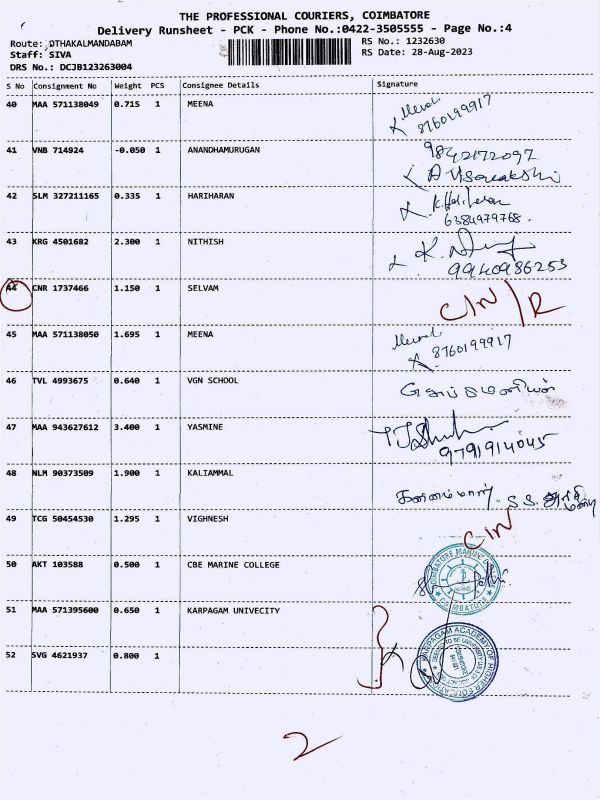 THE PROFESSIONAL COURIERS, COIMBATORE
Delivery Runsheet - PCK - Phone No.:0422-3505555 - Page No.:4
Route: OTHAKALMANDABAM
RS No.: 1232630
Staff: SIVA
RS Date: 28-Aug-2023
DRS No.: DCJB123263004
S No Consignment No Weight PCS Consignee Details Signature
40 MAA 571138049 0.715 1 MEENA
8760199917
41 VNB 714924 -0.050 1 ANANDHAMURUGAN 9842172097
42 SLM 327211165 0.335 1 HARIHARAN
6384979768.
43 KRG 4501682 2.300 1 NITHISH
9940986253
44 CNR 1737466 1.150 1 SELVAM CIN/R
45 MAA 571138050 1.695 1 MEENA
8760199917
46 TVL 4993675 0.640 1 VGN SCHOOL
47 MAA 943627612 3.400 1 YASMINE
9791914045
48 NLM 90373509 1.900 1 KALIAMMAL
49 TCG 50454530 1.295 1 VIGHNESH CIN
50 AKT 103588 0.500 1 CBE MARINE COLLEGE
COIMBATORE MARINE
COIMBATORE
51 MAA 571395600 0.650 1 KARPAGAM UNIVECITY
KARPAGAM ACADEMY OF HIGHER EDUCATION
52 SVG 4621937 0.800 1
2